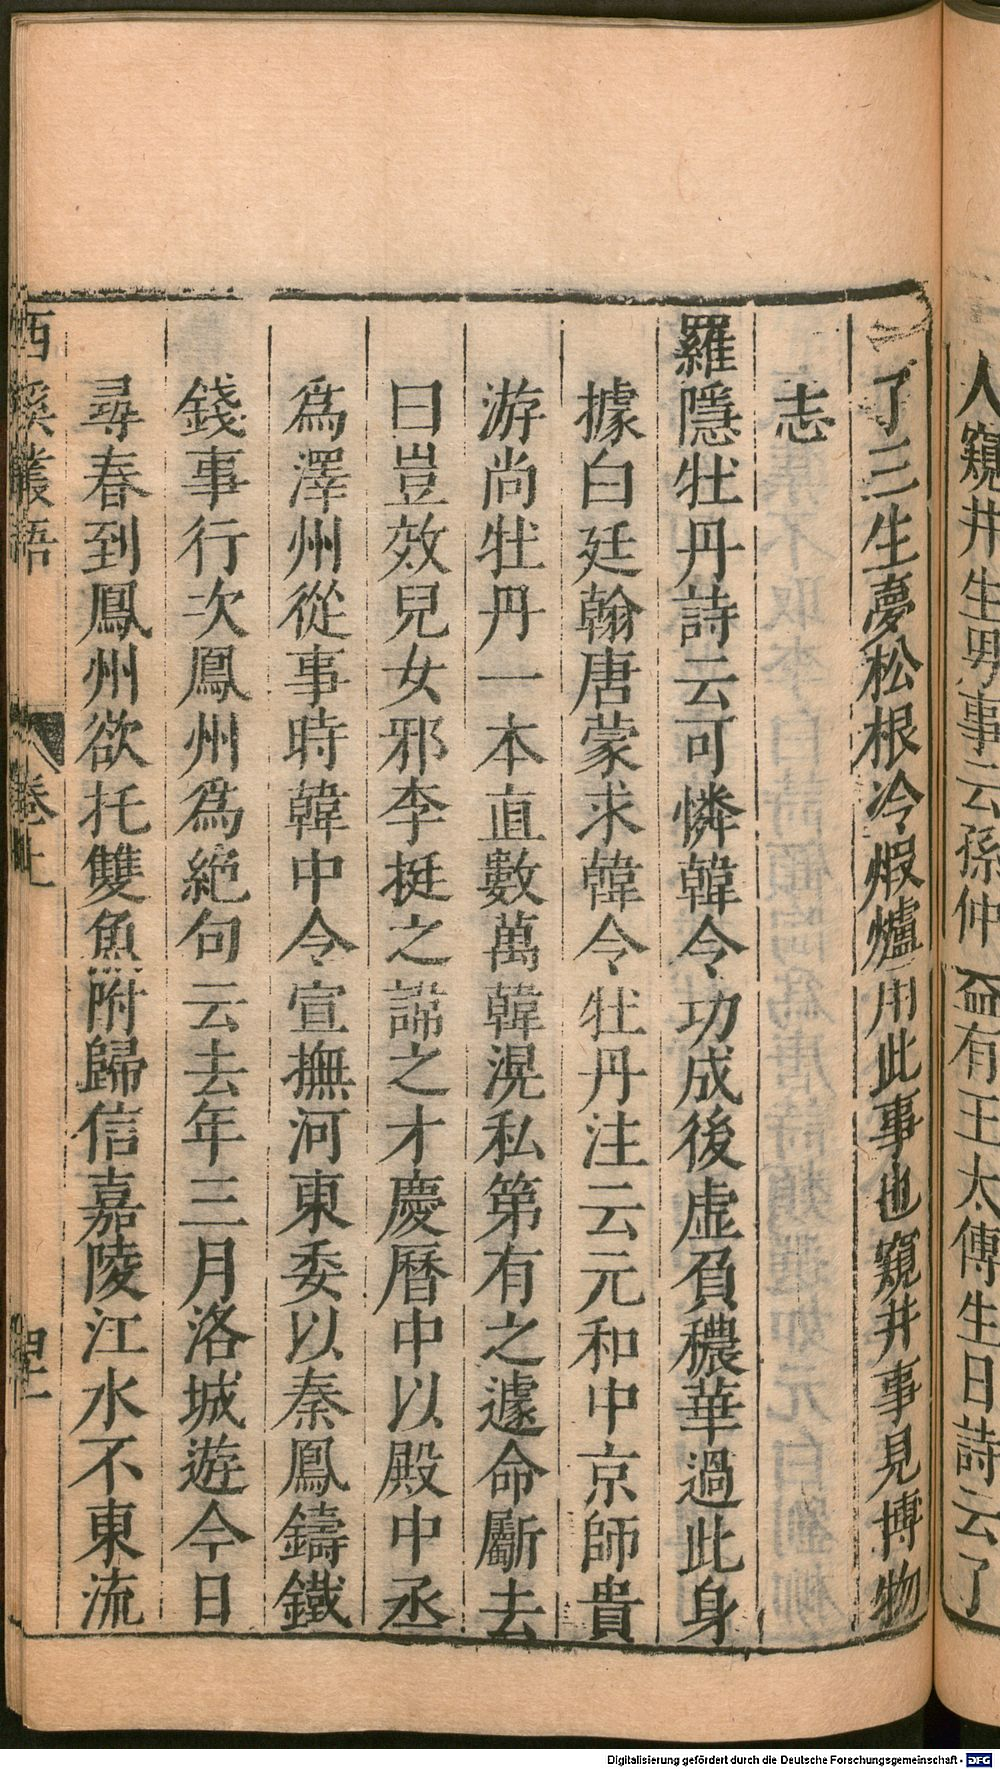 人窺井生男事云孫仲益有王太傅生日詩云了
了三生夢松根冷煆爐用此事也窺井事見博物
志
羅隱牡丹詩云可憐韓令功成後虛負穠華過此身
據白廷翰唐蒙求韓令牡丹注云元和中京師貴
游尚牡丹一本直數萬韓滉私第有之遽命斸去
曰豈效兒女邪李挺之諦之才慶曆中以殿中丞
爲澤州從事時韓中令宣撫河東委以秦鳳鑄鐵
錢事行次鳳州爲絶句云去年三月洛城遊今日
尋春到鳳州欲托雙魚附歸信嘉陵江水不東流
西溪叢語 卷上
Digitalisierung gefördert durch die Deutsche Forschungsgemeinschaft - DFG